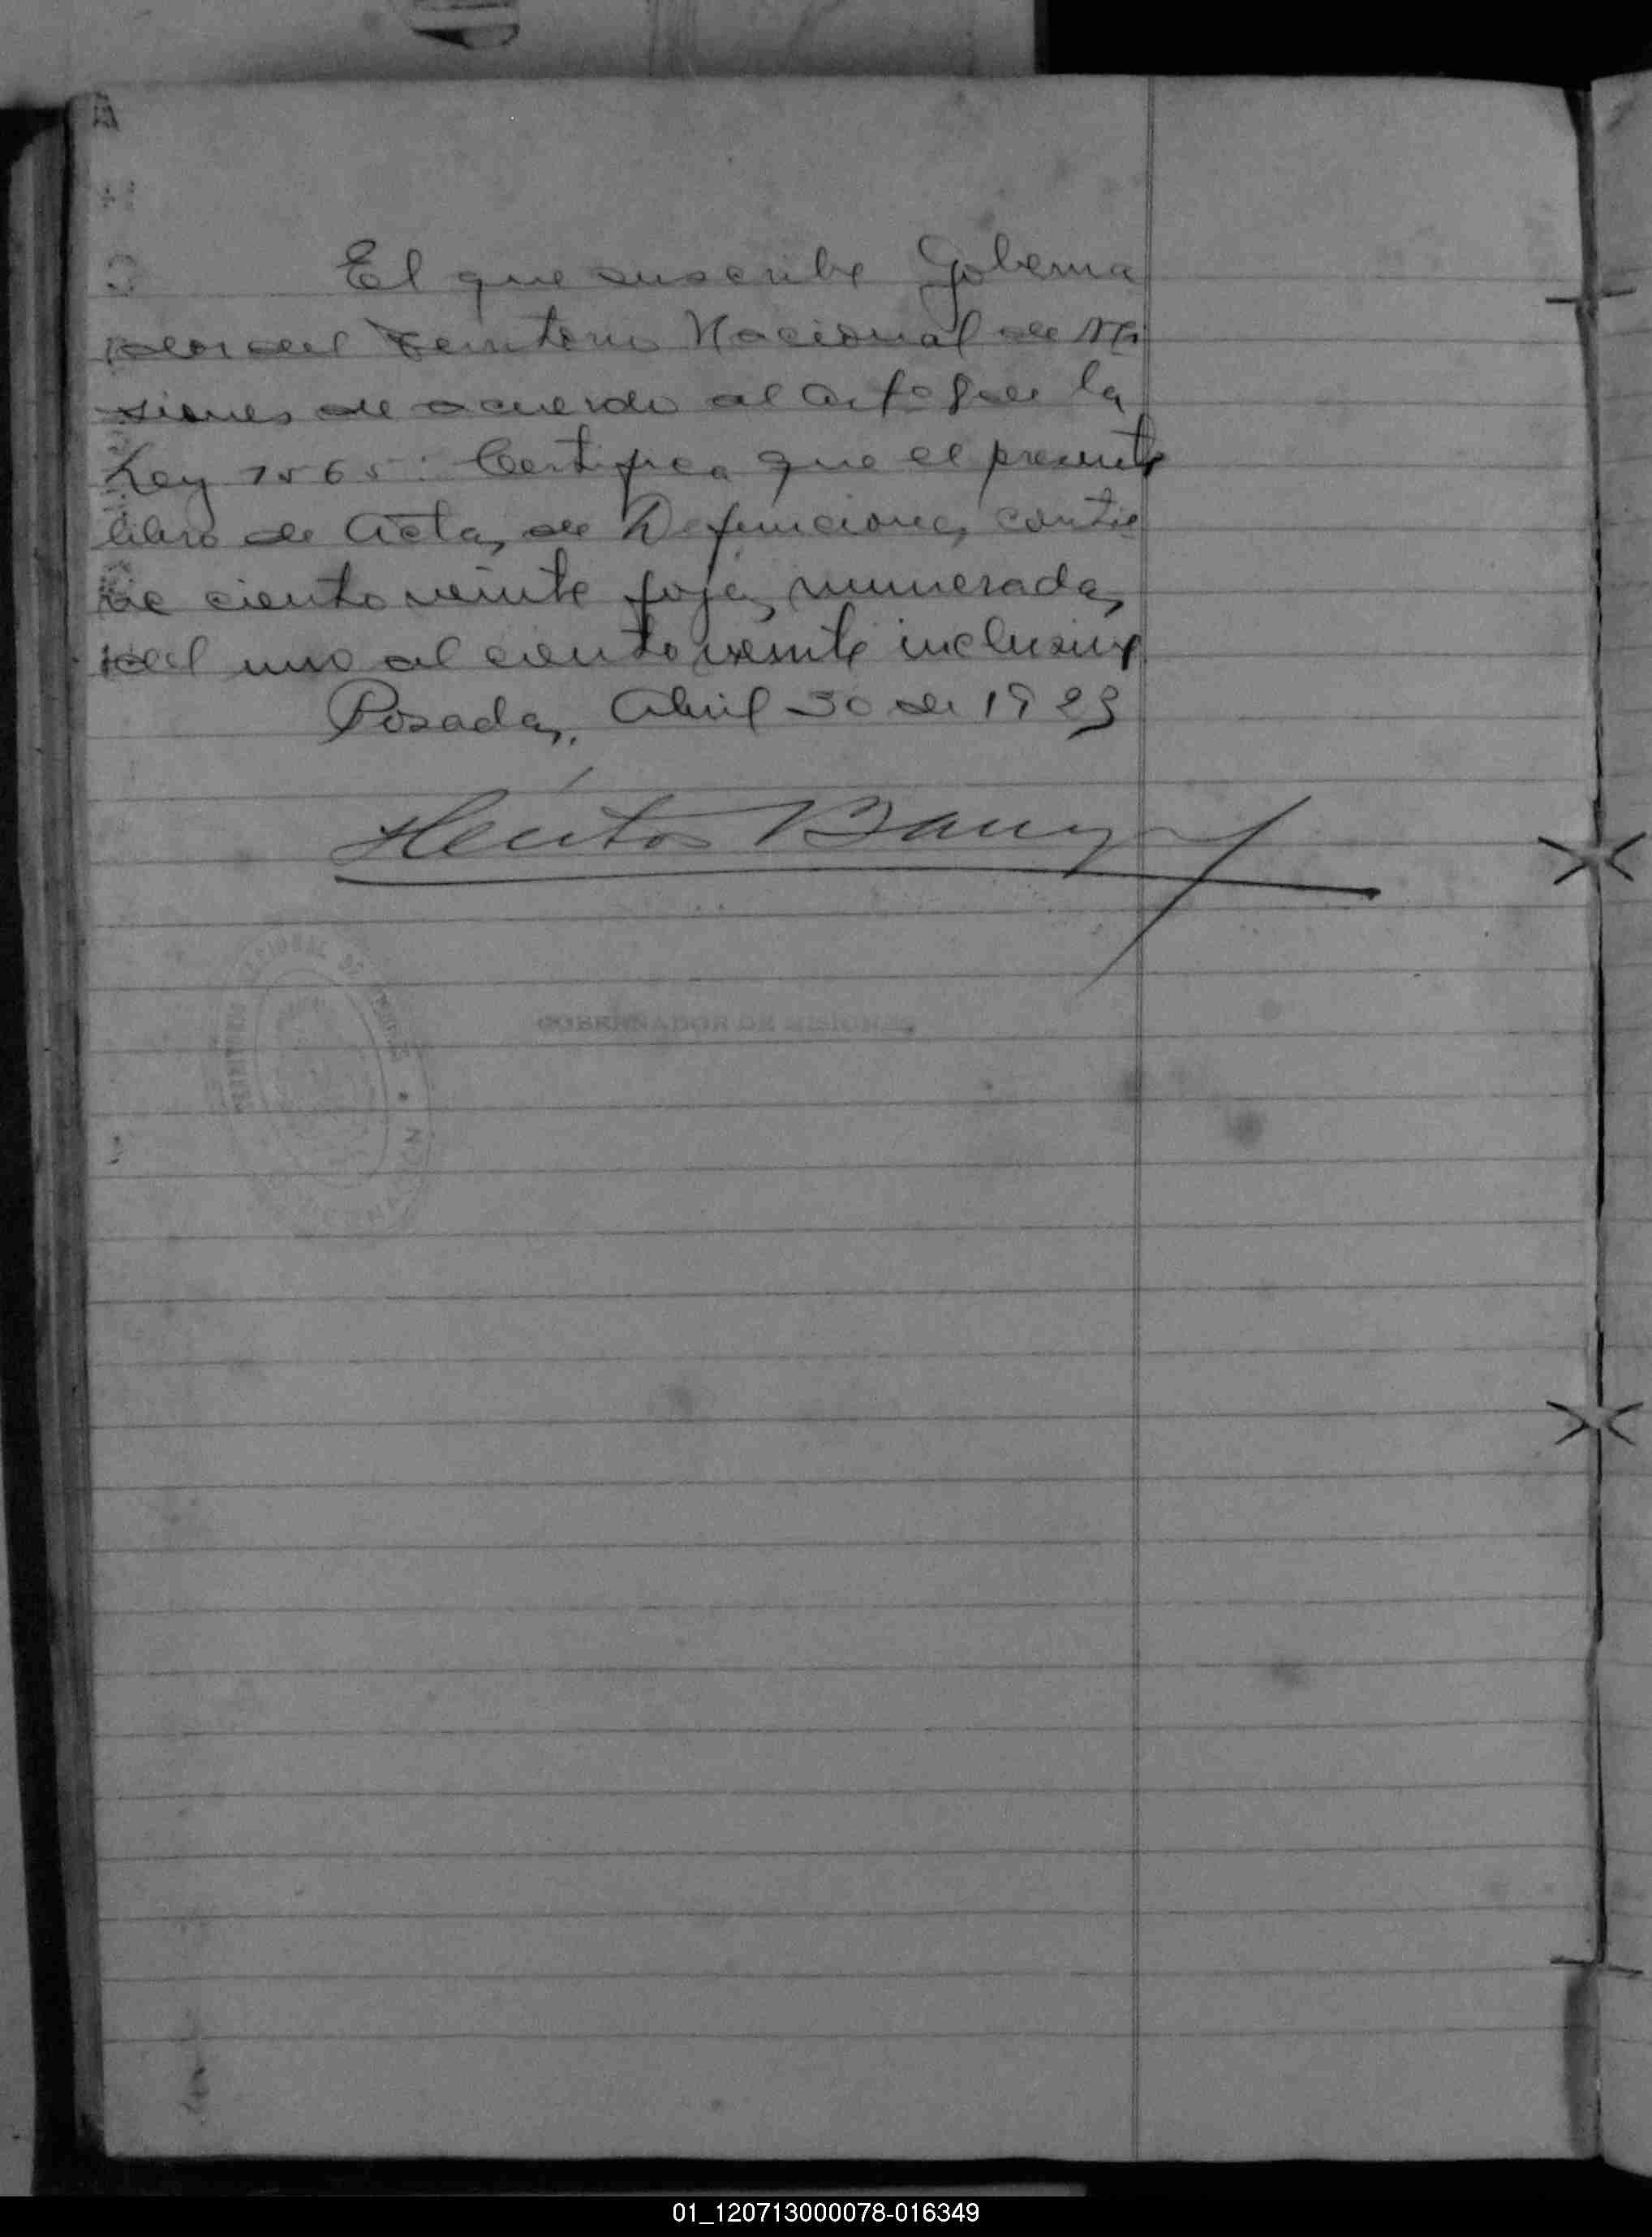 El que suscribe Goberna
dor del Territorio Nacional de Mi
siones de acuerdo al Art de la
Ley 1565: Certifica que el presente
libro de Actas de Defunciones contie
ne ciento veinte fojas numeradas
del uno al ciento veinte inclusive
Posadas, Abril 30 de 1923
Héctor Barreyro
TERRITORIO NACIONAL DE MISIONES
GOBERNADOR DE MISIONES
01_120713000078-016349